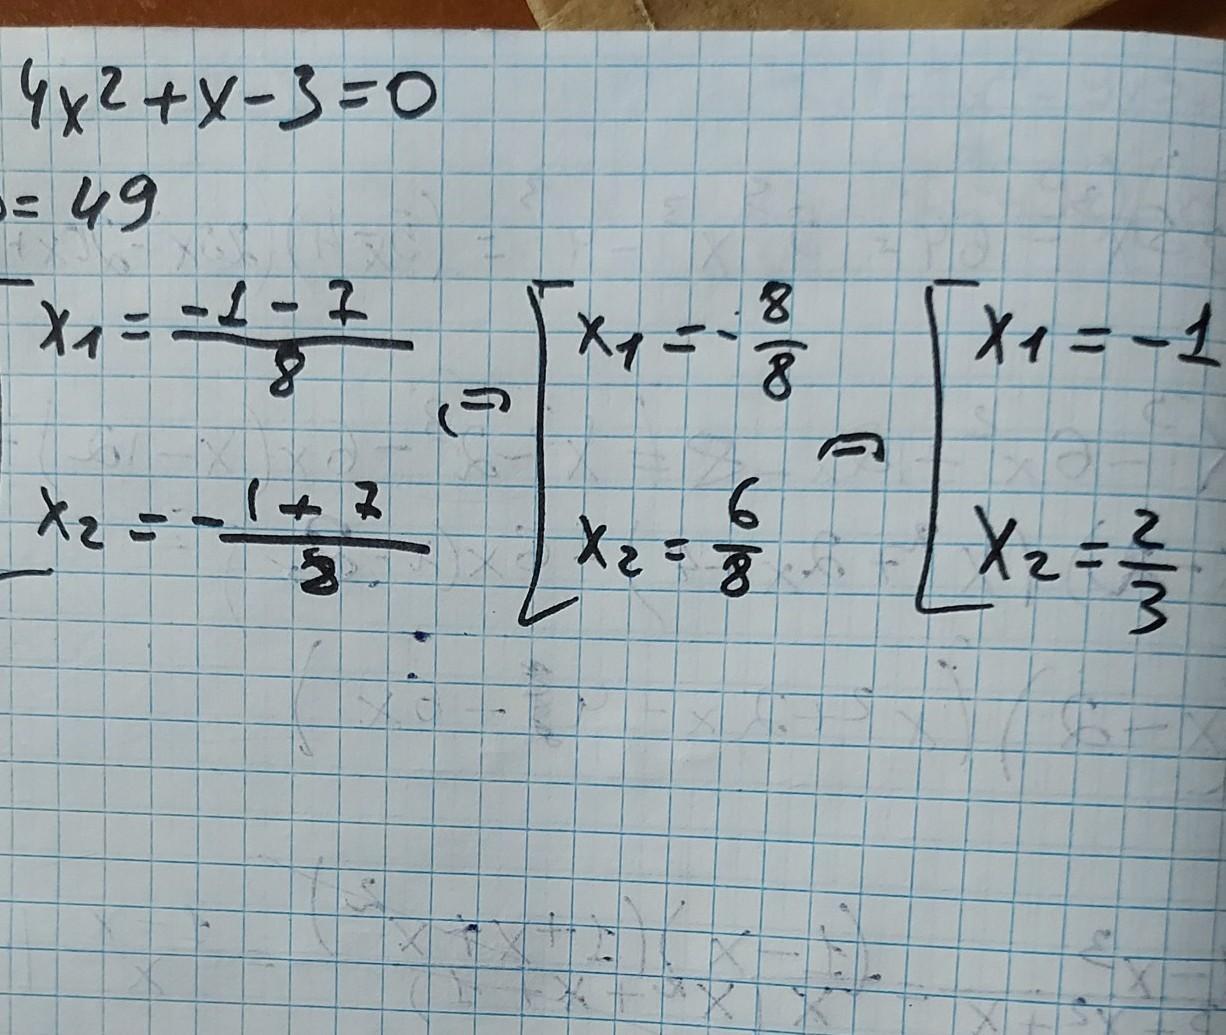 4x² + x - 3 = 0
= 49
x₁ = (-1 - 7)/8 ⇒ [ x₁ = -8/8 ⇒ [ x₁ = -1
x₂ = -(1 + 7)/8 [ x₂ = 6/8 [ x₂ = 2/3